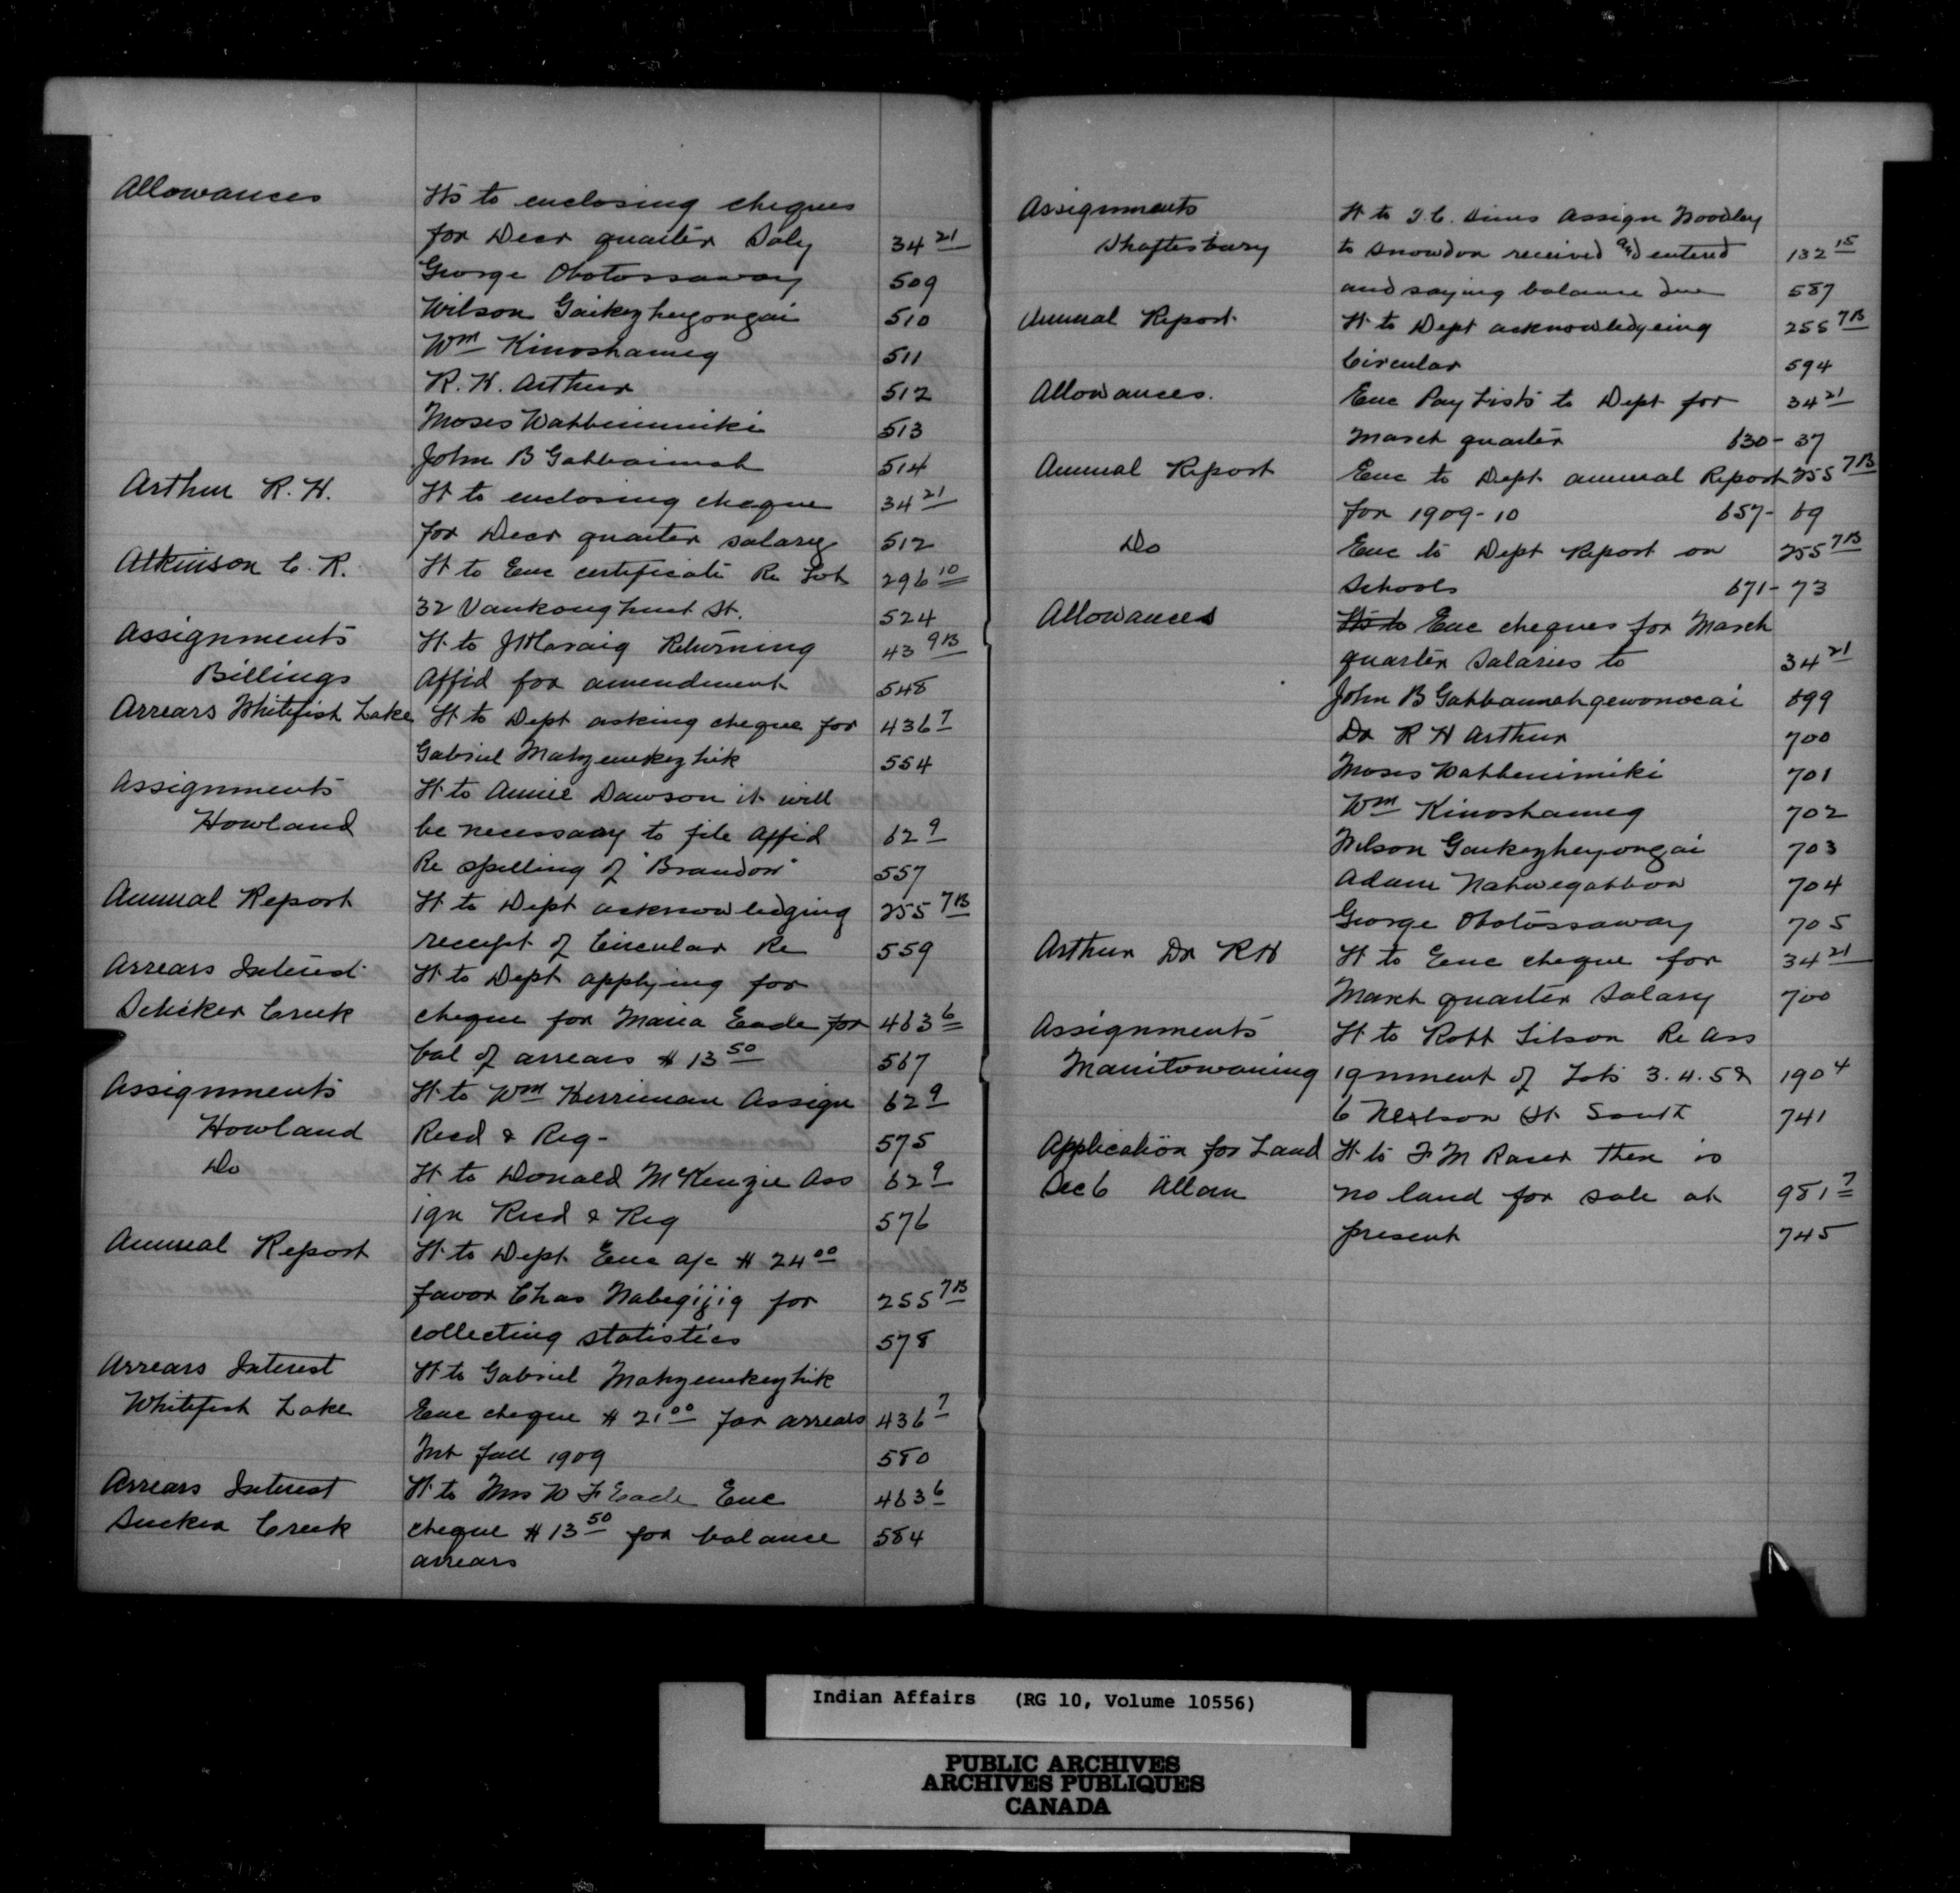 Allowances Hs to enclosing cheques
for Decr quarter Saly 34 21
George Obotossaway 509
Wilson Gaikezheyongai 510
Wm Kinoshameg 511
R. H. Arthur 512
Moses Wahbenimiki 513
John B Gahbaimah 514
Arthur R. H. Ht to enclosing cheque 34 21
for Decr quarter salary 512
Atkinson C. R. Ht to Enc certificate Re Lot 296 10
32 Vankoughnet St. 524
Assignments Ht to Returning 43 9B
Billings Affid for amendment 548
Arrears Whitefish Lake Ht to Dept asking cheque for 436 7
Gabriel Mahzenekezhik 554
Assignments Ht to Annie Dawson it will
Howland be necessary to file affid 62 9
Re spelling of "Brandon" 557
Annual Report Ht to Dept acknowledging 255 7B
receipt of Circular Re 559
Arrears Interest Ht to Dept applying for
Sucker Creek cheque for Maria Eade for 463 6
bal of arrears $ 13 50 567
Assignments Ht to Wm Herriman Assign 62 9
Howland Recd & Reg- 575
Do Ht to Donald McKenzie Ass 62 9
ign Recd & Reg 576
Annual Report Ht to Dept Enc a/c $ 24 00
favor Chas Nabegijig for 255 7B
collecting statistics 578
Arrears Interest Ht to Gabriel Mahzenekezhik
Whitefish Lake Enc cheque $ 21 00 for arrears 436 7
Int fall 1909 580
Arrears Interest Ht to Mrs W F Eade Enc 463 6
Sucker Creek cheque $ 13 50 for balance 584
arrears
Assignments Ht to T. C. Sims Assign Woodley
Shaftesbury to Snowdon received and entered 132 15
and saying balance due 587
Annual Report Ht to Dept acknowledgeing 255 7B
Circular 594
Allowances. Enc Pay Lists to Dept for 34 21
March quarter 630-37
Annual Report Enc to Dept annual Report 255 7B
for 1909-10 657-69
Do Enc to Dept Report on 255 7B
Schools 671-73
Allowances Hs to Enc cheques for March
quarter Salaries to 34 21
John B Gahbaimahgewonocai 699
Dr R H Arthur 700
Moses Wahbenimiki 701
Wm Kinoshameg 702
Wilson Gaikezheyongai 703
Adam Nahwegahbow 704
George Obotossaway 705
Arthur Dr R H Ht to Enc cheque for 34 21
March quarter Salary 700
Assignments Ht to Robt Re Ass
Manitowaning ignment of Lots 3. 4. 5 & 190 4
6 Nelson St South 741
Application for Land Ht to F M there is
Sec 6 Allan no land for sale at 981 7
present 745
Indian Affairs (RG 10, Volume 10556)
PUBLIC ARCHIVES
ARCHIVES PUBLIQUES
CANADA